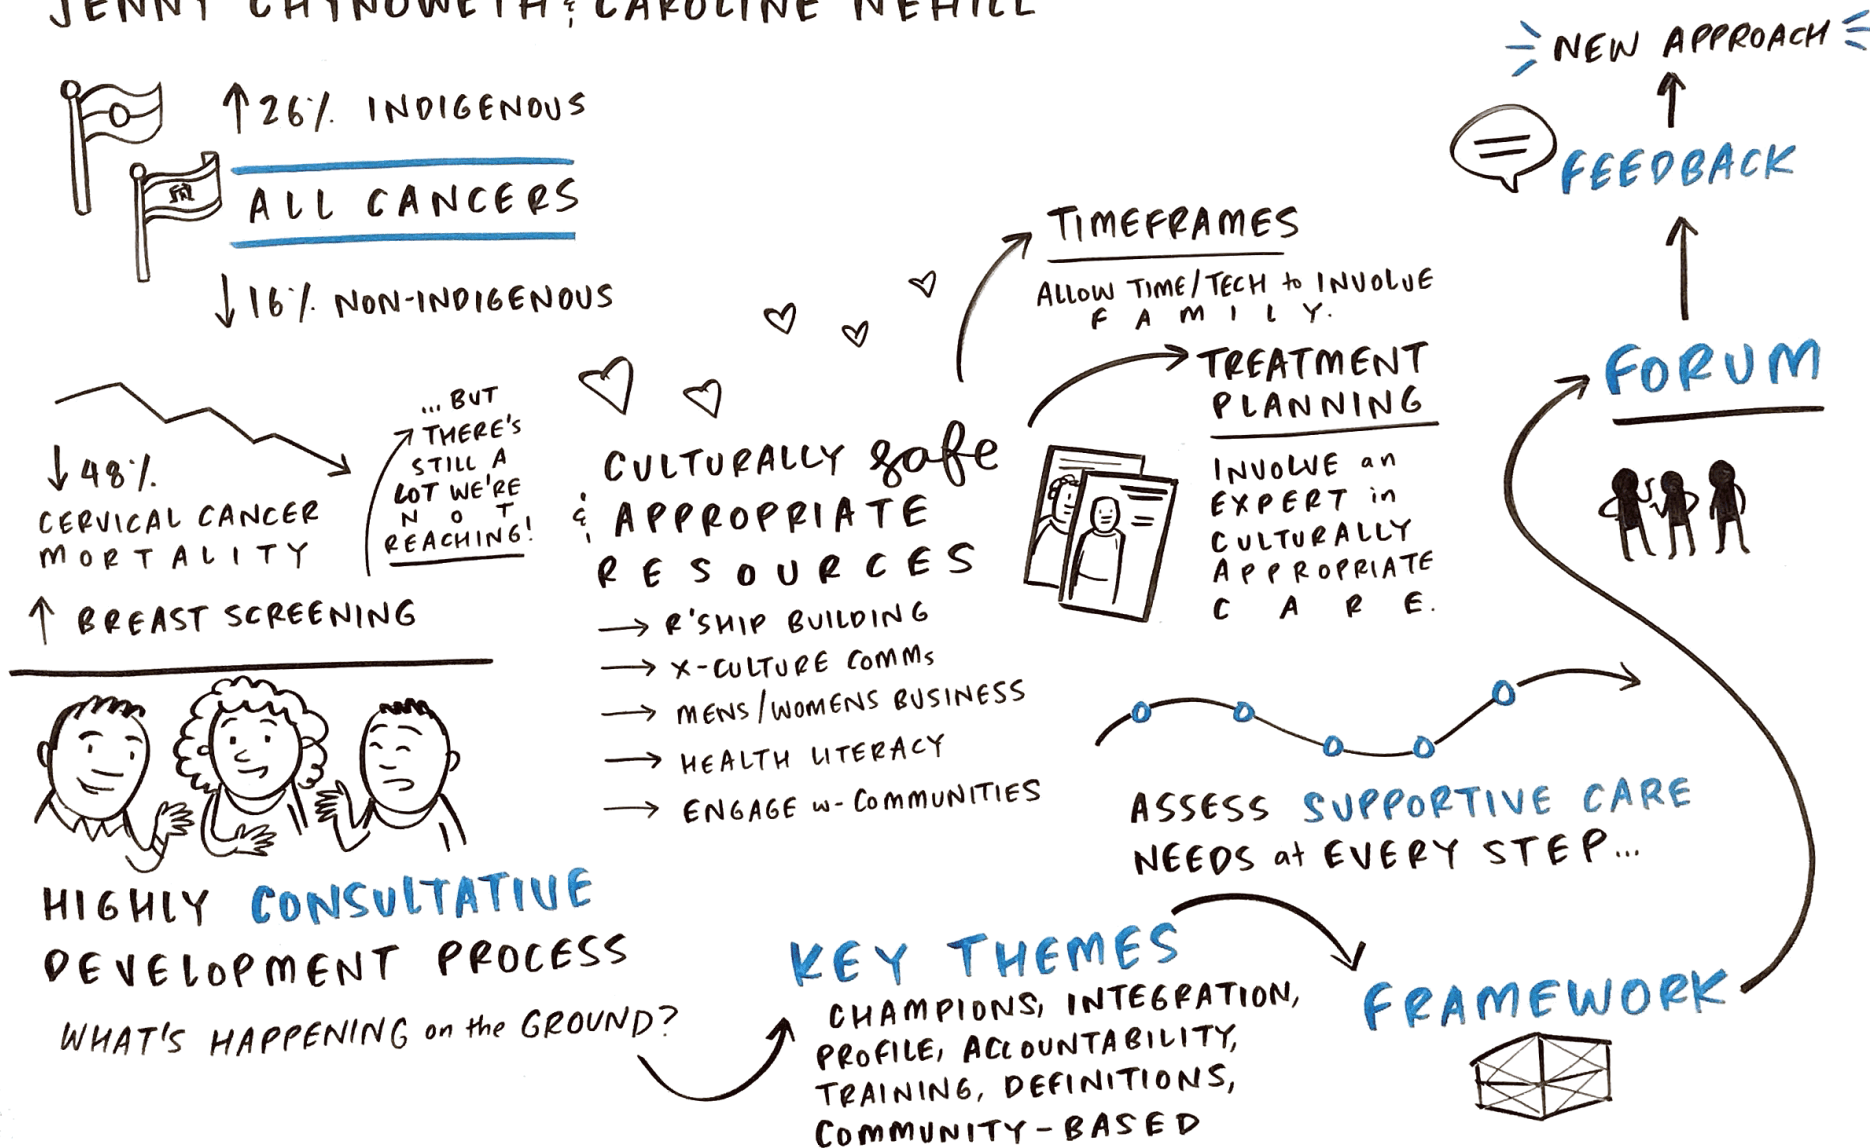 JENNY CHYNOWETH & CAROLINE NEHILL
↑ 26% INDIGENOUS
ALL CANCERS
↓ 16% NON-INDIGENOUS
↓ 48%
CERVICAL CANCER
MORTALITY
... BUT
THERE'S
STILL A
LOT WE'RE
NOT
REACHING!
↑ BREAST SCREENING
HIGHLY CONSULTATIVE
DEVELOPMENT PROCESS
WHAT'S HAPPENING on the GROUND?
CULTURALLY safe
& APPROPRIATE
RESOURCES
→ R'SHIP BUILDING
→ X-CULTURE COMMS
→ MENS/WOMENS BUSINESS
→ HEALTH LITERACY
→ ENGAGE w- COMMUNITIES
TIMEFRAMES
ALLOW TIME/TECH to INVOLVE
FAMILY.
TREATMENT
PLANNING
INVOLVE an
EXPERT in
CULTURALLY
APPROPRIATE
CARE.
ASSESS SUPPORTIVE CARE
NEEDS at EVERY STEP...
KEY THEMES
CHAMPIONS, INTEGRATION,
PROFILE, ACCOUNTABILITY,
TRAINING, DEFINITIONS,
COMMUNITY-BASED
FRAMEWORK
FORUM
FEEDBACK
NEW APPROACH